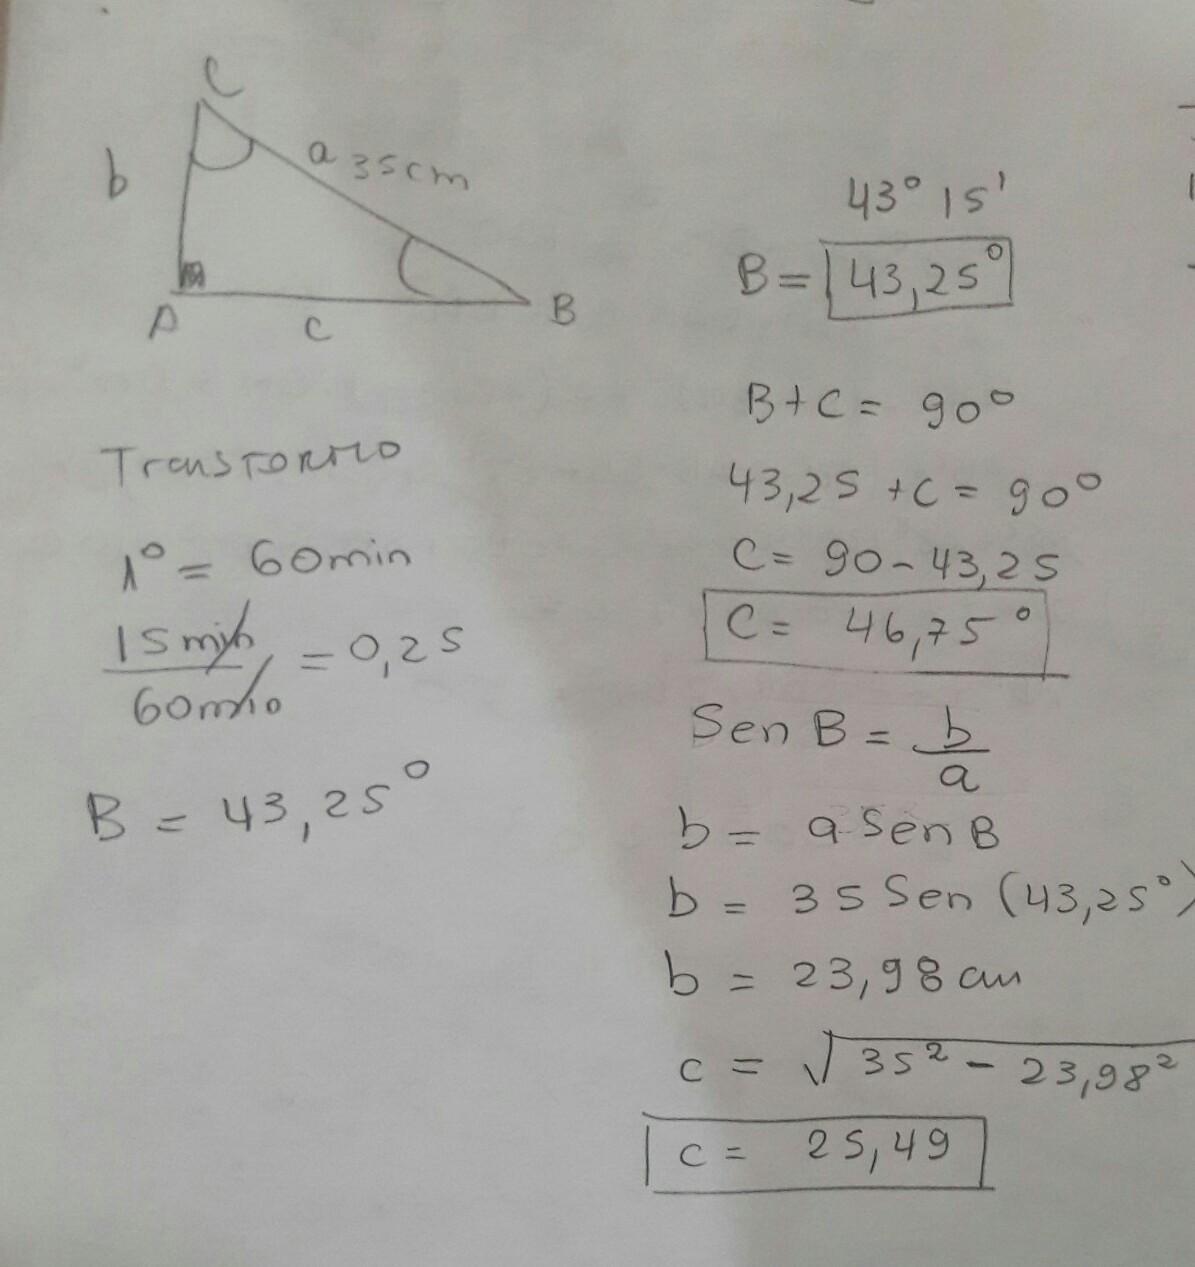 C
b
a 35cm
A
c
B
Transformo
1° = 60min
15 min
60min
= 0,25
B = 43,25°
43° 15'
B = 43,25°
B + C = 90°
43,25 + C = 90°
C = 90 - 43,25
C = 46,75°
Sen B = b
a
b = a Sen B
b = 35 Sen (43,25°)
b = 23,98 cm
c = √35² - 23,98²
c = 25,49